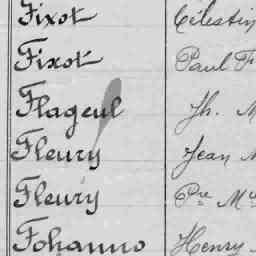 Fixot Célestin
Fixot Paul F
Flageul Jh. M
Fleury Jean M
Fleury Pre M
Fohanno Henry